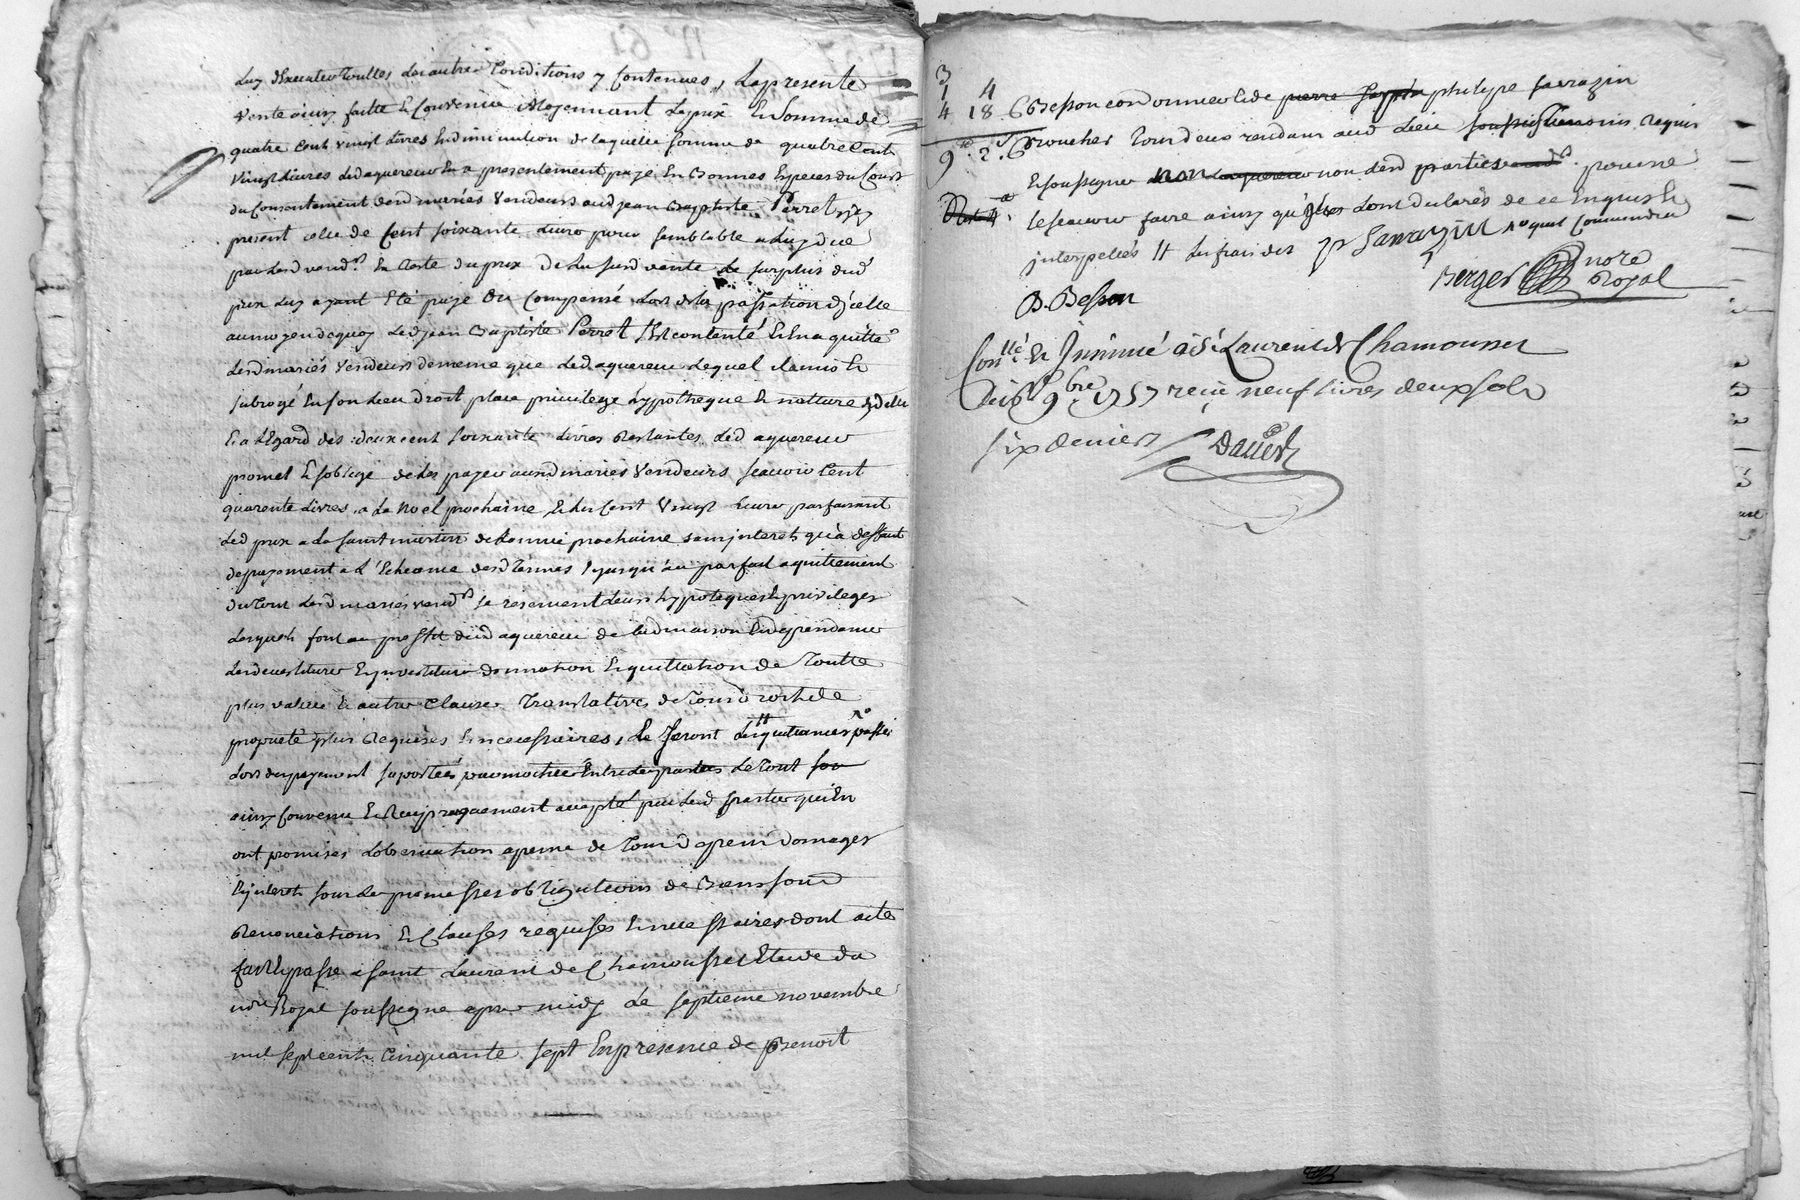 Luy dExecuter Touttes Les autres Conditions y Contenues, La presente
vente ainsy faitte Et Convenüe Moyennant Le prix Et Somme de
quatre Cent vingt Livres En diminution de laquelle somme de quatre Cent
vingt Livres Led aquereur En a presentement payé En Bonnes Especes du Cours
du Consentement desd mariés Vendeurs aud jean Baptiste Perret jcy
present celle de Cent soixante Livres pour semblable a Luy due
par Lesd vend.rs En Reste du prix De La susd vente Le surplus dud
prix Luy ayant Eté payé ou Compensé Lors de la passation d'jcelle
au moyen de quoy Led jean Baptiste Perret Est contenté Et En a quitté
Lesd mariés Vendeurs de meme que Led aquereur Lequel Il a mis Et
subrogé En son Lieu droit place privilege hypotheque Et nature d'jcelle
Et a L'Egard des deux cent soixante Livres Restantes Led aquereur
promet Et s'oblige de Les payer auxd mariés Vendeurs scavoir Cent
quarente Livres a La Noel prochaine Et Les Cent vingt Livres parfaisant
Led prix a La saint martin de L'année prochaine sans jnterets qu'à deffaut
de payement a L'Echeance desd Termes jusqu'au parfait aquittement
du Tout Lesd mariés vend.rs se reservent Leurs hypoteques Et privileges
Lesquels font au proffit dud aquereur de lad maison Et dependances
Les devestiture Et jnvestiture donnation Et quittation de Toutte
plus value Et autres Clauses Translatives de Tous droits de
proprieté plus Requises Et necessaires, Et seront Les quittances passé
Lors du payement Le Tout
ainsy Convenu Et Reciproquement accepté par Lesd parties qui En
ont promises L'observation a peine de Tous depens domages
Et jnterets sous Les promesses obligations de Biens sous
Renonciations Et Clauses requises Et necessaires dont acte
fait Et passé a saint Laurent de Chamousset Etude du
no.re Royal soussigné apres midy Le septieme novembre
mil sept cent Cinquante sept En presence de Benoit
3
1 4
4 18 6 Besson cordonnier Et de philype sarrazin
9 2 6 Tous deux residants aud Lieu requis
Et soussigné non Lesd parties pour ne
Le scavoir faire ainsy qu'elles L'ont declarés de ce Enquis Et
jnterpellés
jp Sarrazin
Berger no.re Royal
B. Besson
Con.llé Et Jnsinué à S.t Laurent de Chamousset
Le 9.bre 1757 reçu neuf Livres deux sols
six deniers